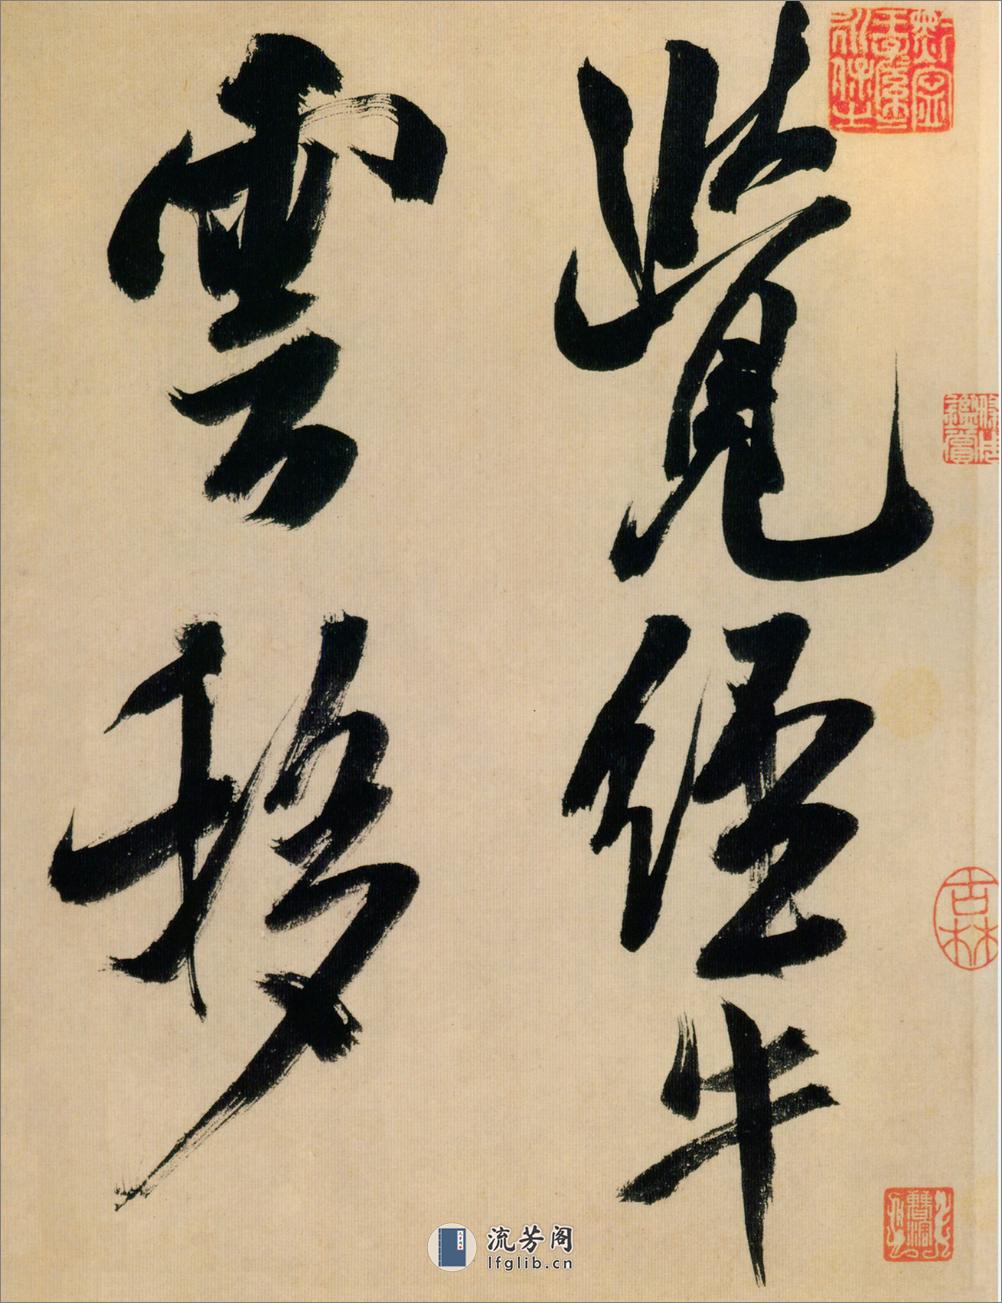 覺經年
雲移
古林
流芳阁
lfglib.cn